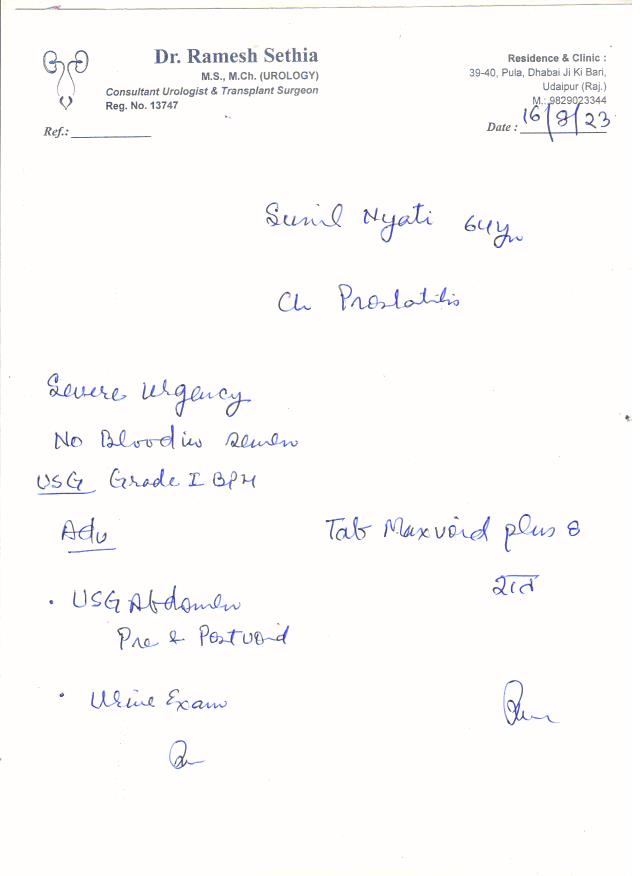 Dr. Ramesh Sethia
M.S., M.Ch. (UROLOGY)
Consultant Urologist & Transplant Surgeon
Reg. No. 13747
Ref.:
Residence & Clinic :
39-40, Pula, Dhabai Ji Ki Bari,
Udaipur (Raj.)
M.: 9829023344
Date : 16/8/23
Sunil Nyati 64yr
Ch Prostatitis
Severe Urgency
No Blood in semen
USG Grade I BPH
Adv
Tab Maxvoid plus 8
रात
• USG Abdomen
Pre & Postvoid
• Urine Exam